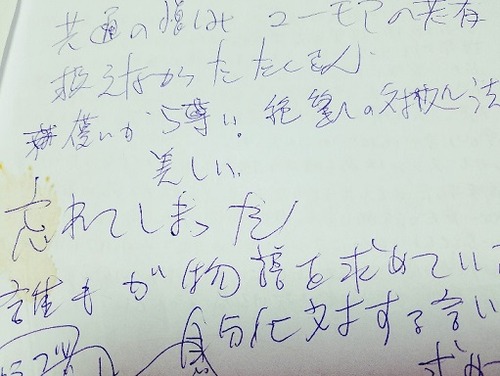 共通の憎しみ ユーモアの共有
扱えなかったたくさん
儚いから尊い。絶望への対処法
美しい。
忘れてしまった
誰もが物語を求めてい
する言い
求め